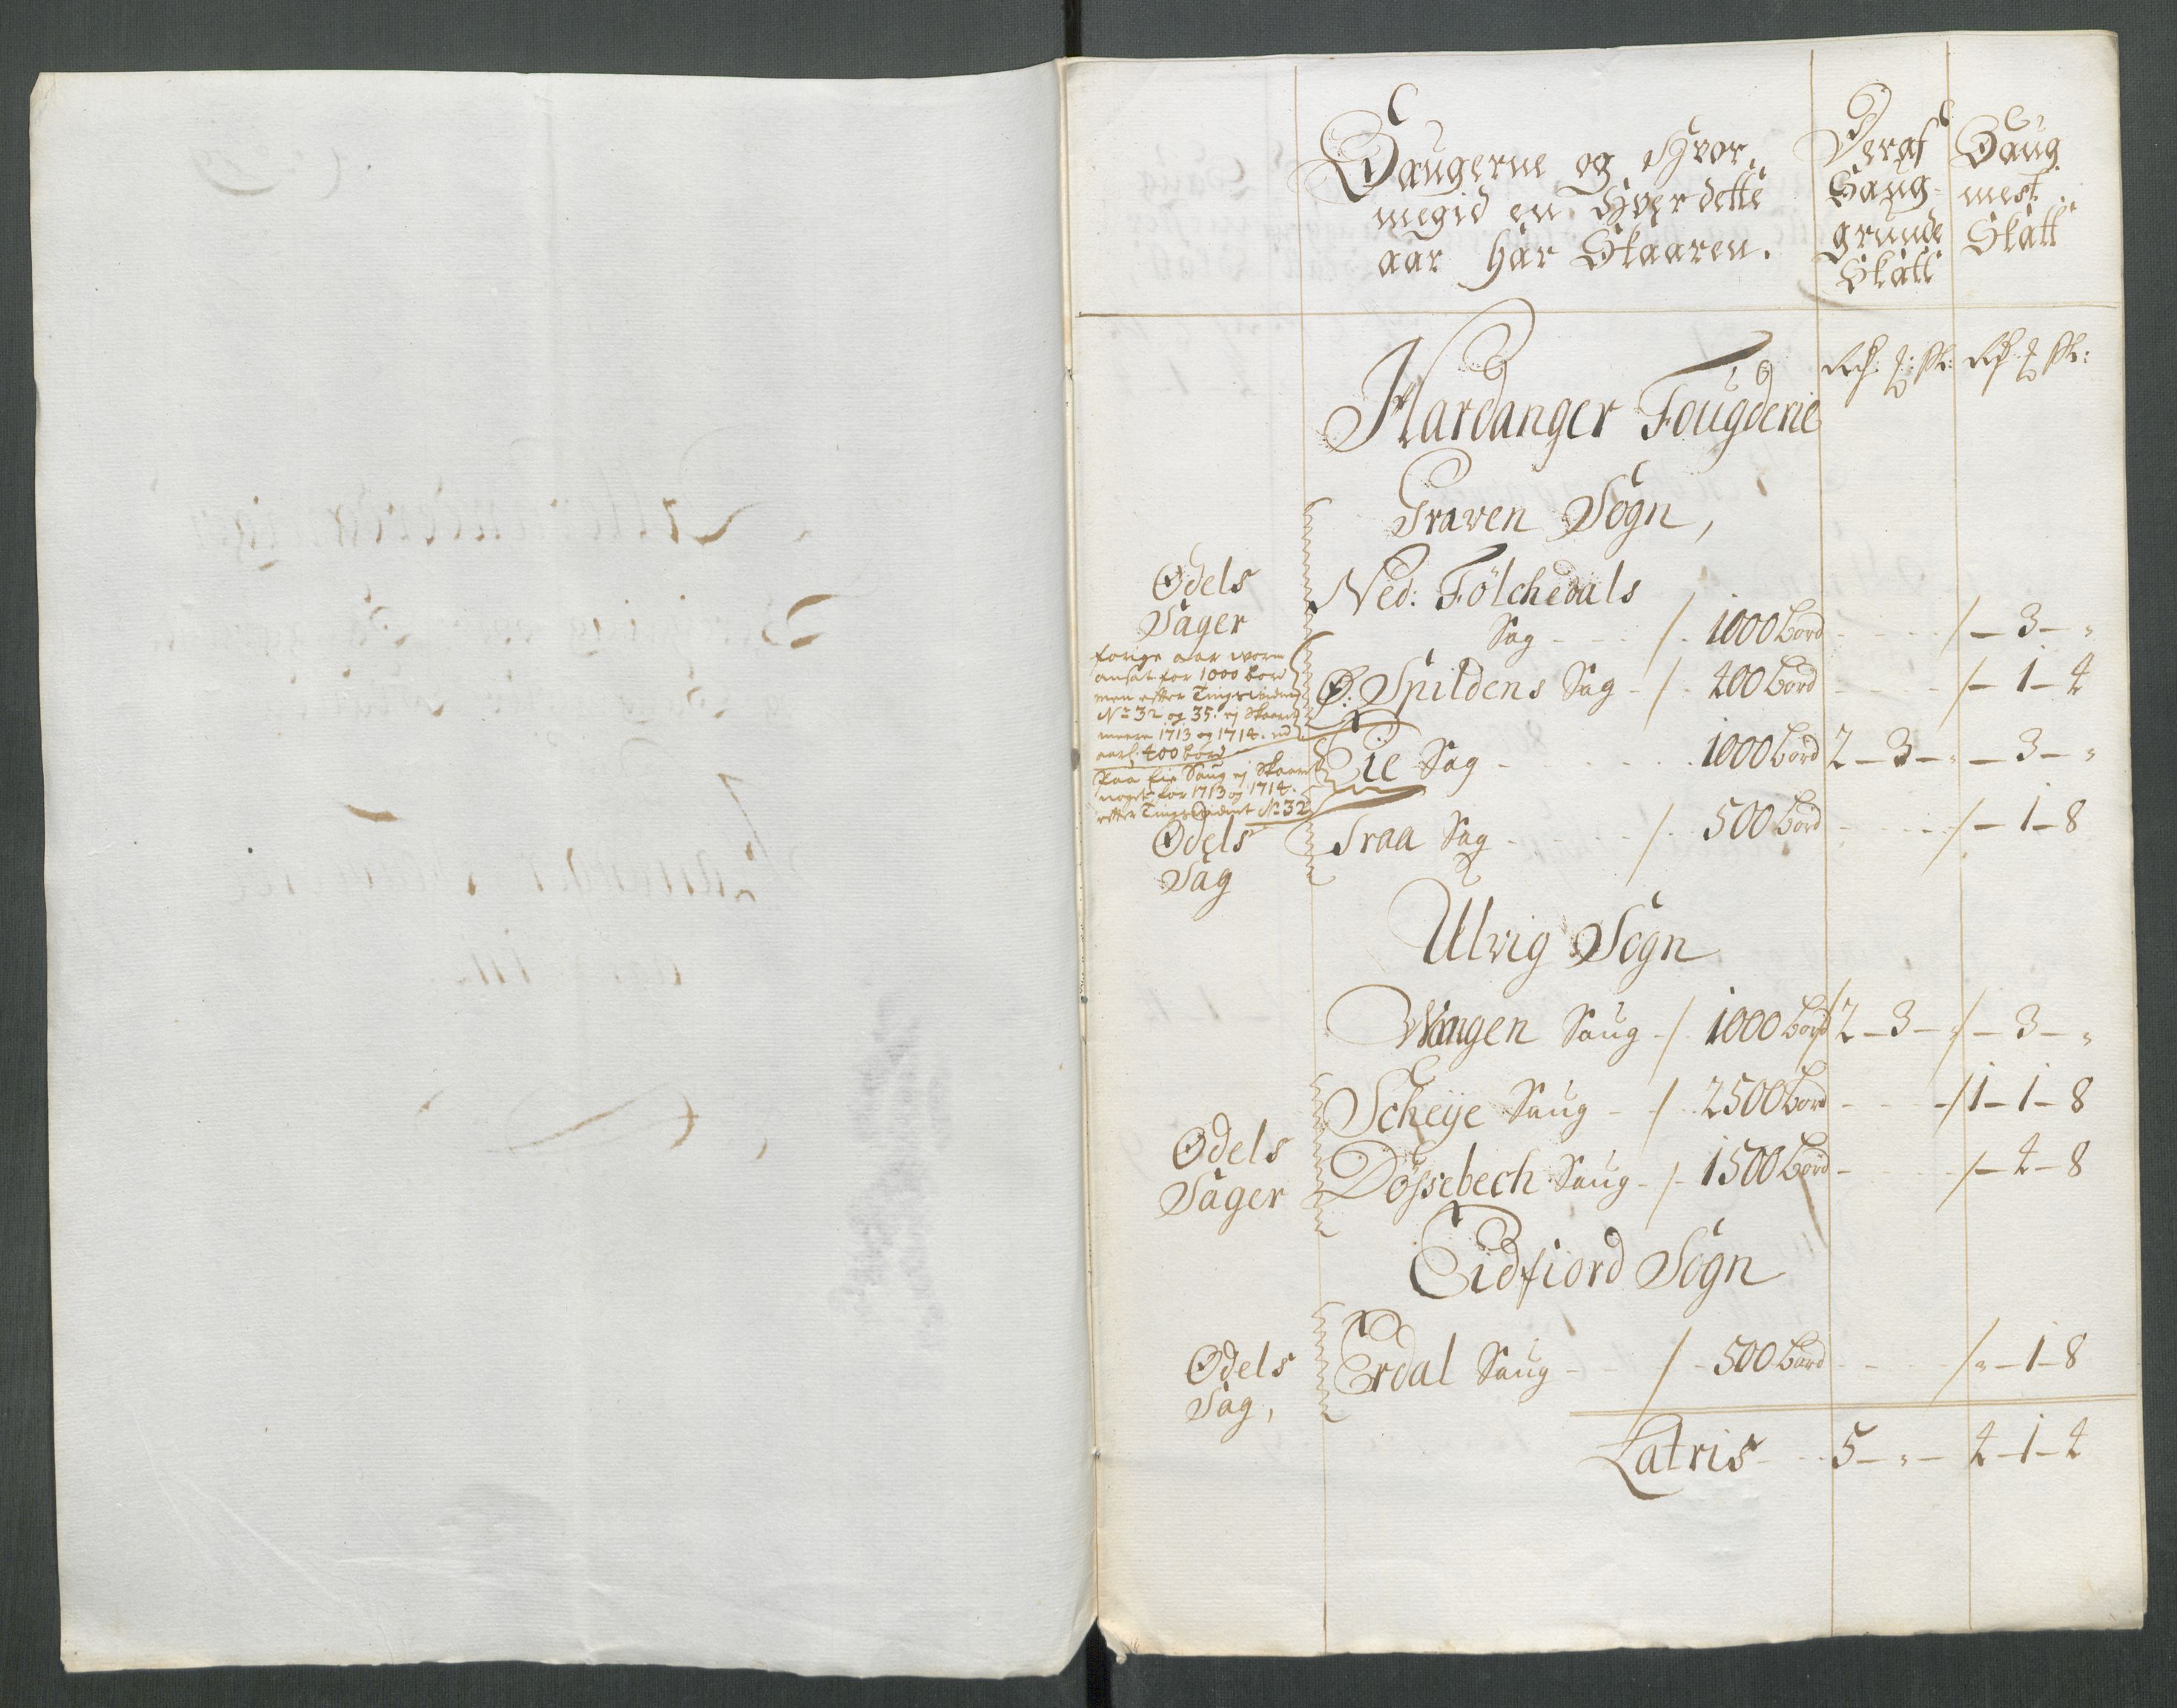 Saugerne og Hvor
megid en Hver dette
aar har Skaaren.
Deraf
Saug-
grunde
Skatt
Saug
mest.
Skatt
Rdr: ꝑ: ſk: Rdr ꝑ ſk:
Hardanger Fougderie
Graven Sogn,
Odels
Sager
Ned: Fölchedals
Sag - - - /. 1000 bord - - - /- 3 - "
forige aar voren
ansat for 1000 bord
men efter Tingsvidne
No 32 og 35. ej Skaaret
meere 1713 og 1714. end
aarl: 400 bord
Ø: Spildens Sag - /. 400 bord - - - /- 1 - 4
Eie Sag - - - - 1000 bord 2 - 3 - " - 3 - "
Paa Eie Saug ej Skaaret
noget for 1713 og 1714.
efter Tingsvidnet No 32
Odels
Sag
Traa Sag - - - /. 500 bord - - - /- 1 - 8
Ulvig Sogn
Wangen Saug - /. 1000 bord / 2 - 3 - " /- 3 - "
Scheye Saug - - /. 2500 bord - - - / 1 - 1 - 8
Odels
Sager
Dössebech Saug - /- 1500 bord - - - /- 4 - 8
Eidfiord Sogn
Odels
Sag,
Erdal Saug - - /- 500 bord - - / " - 1 - 8
Latris - - 5 - " - 4 - 1 - 4